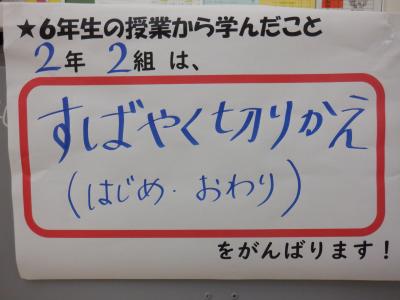 ★6年生の授業から学んだこと
2年 2組 は、
すばやく切りかえ
(はじめ・おわり)
をがんばります!